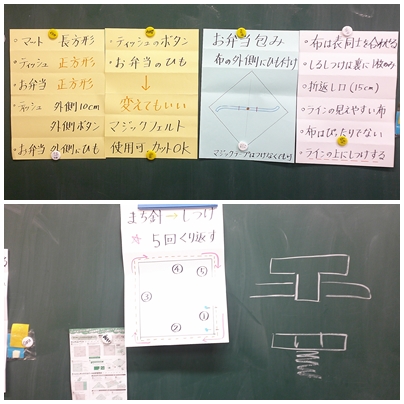 ◦ マート 長方形
◦ ティッシュ 正方形
◦ お弁当 正方形
◦ ティッシュ 外側10cm
外側ボタン
◦ お弁当 外側にひも
・ティッシュのボタン
・お弁当のひも
↓
変えてもいい
マジックフェルト
使用可 カットOK
お弁当包み
布の外側にひも付け
マジックテープはつけなくても可
◦ 布は表同士を合わせる
◦ しるしつけは裏に1枚から
◦ 折返し口 (15cm)
◦ ラインの見えやすい布
◦ 布はぴったりでない
◦ ラインの上にしつけする
まち針 → しつけ
☆ 5回くり返す
④
⑤
③
①
②